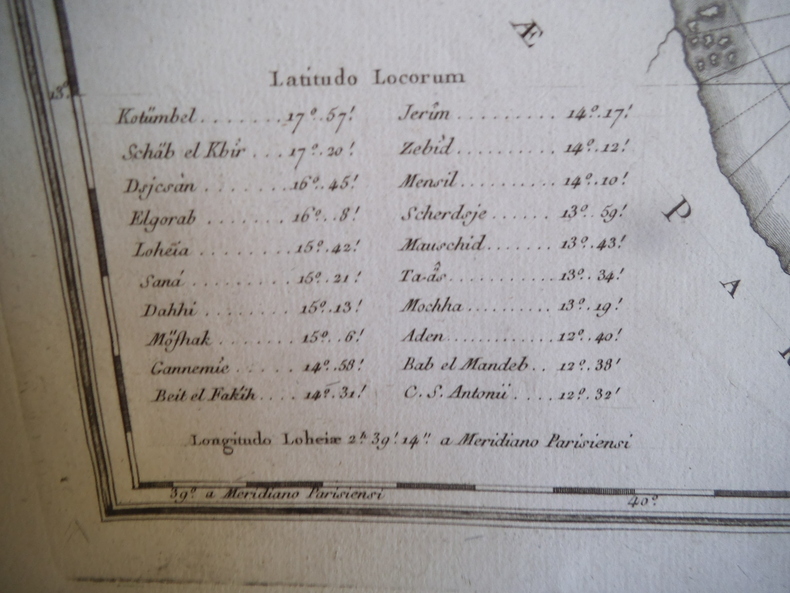 Æ
Latitudo Locorum
13.°
Kotûmbel . . . . . . . 17°. 57!
Schäb el Kbîr . . . 17°. 20!
Dsjesân . . . . . . . 16°. 45!
Elgorab . . . . . . . 16°. 8!
Loheïa . . . . . . . . 15°. 42!
Saná . . . . . . . . . 15°. 21!
Dahhi . . . . . . . . 15°. 13!
15°. 6!
Gannemie . . . . . 14°. 58!
Beit el Fakíh . . . . 14°. 31!
Jerîm . . . . . . . . . 14°. 17!
Zebîd . . . . . . . . . 14°. 12!
Mensil . . . . . . . . 14°. 10!
Scherdsje . . . . . . 13°. 59!
Mauschid . . . . . . 13°. 43!
Ta-âs . . . . . . . . . 13°. 34!
Mochha . . . . . . . . 13°. 19!
Aden . . . . . . . . . . 12°. 40!
Bab el Mandeb . . 12°. 38'
C. S. Antonii . . . . 12°. 32'
Longitudo Loheiæ 2.h 39! 14." a Meridiano Parisiensi
39° a Meridiano Parisiensi
40°
P
A